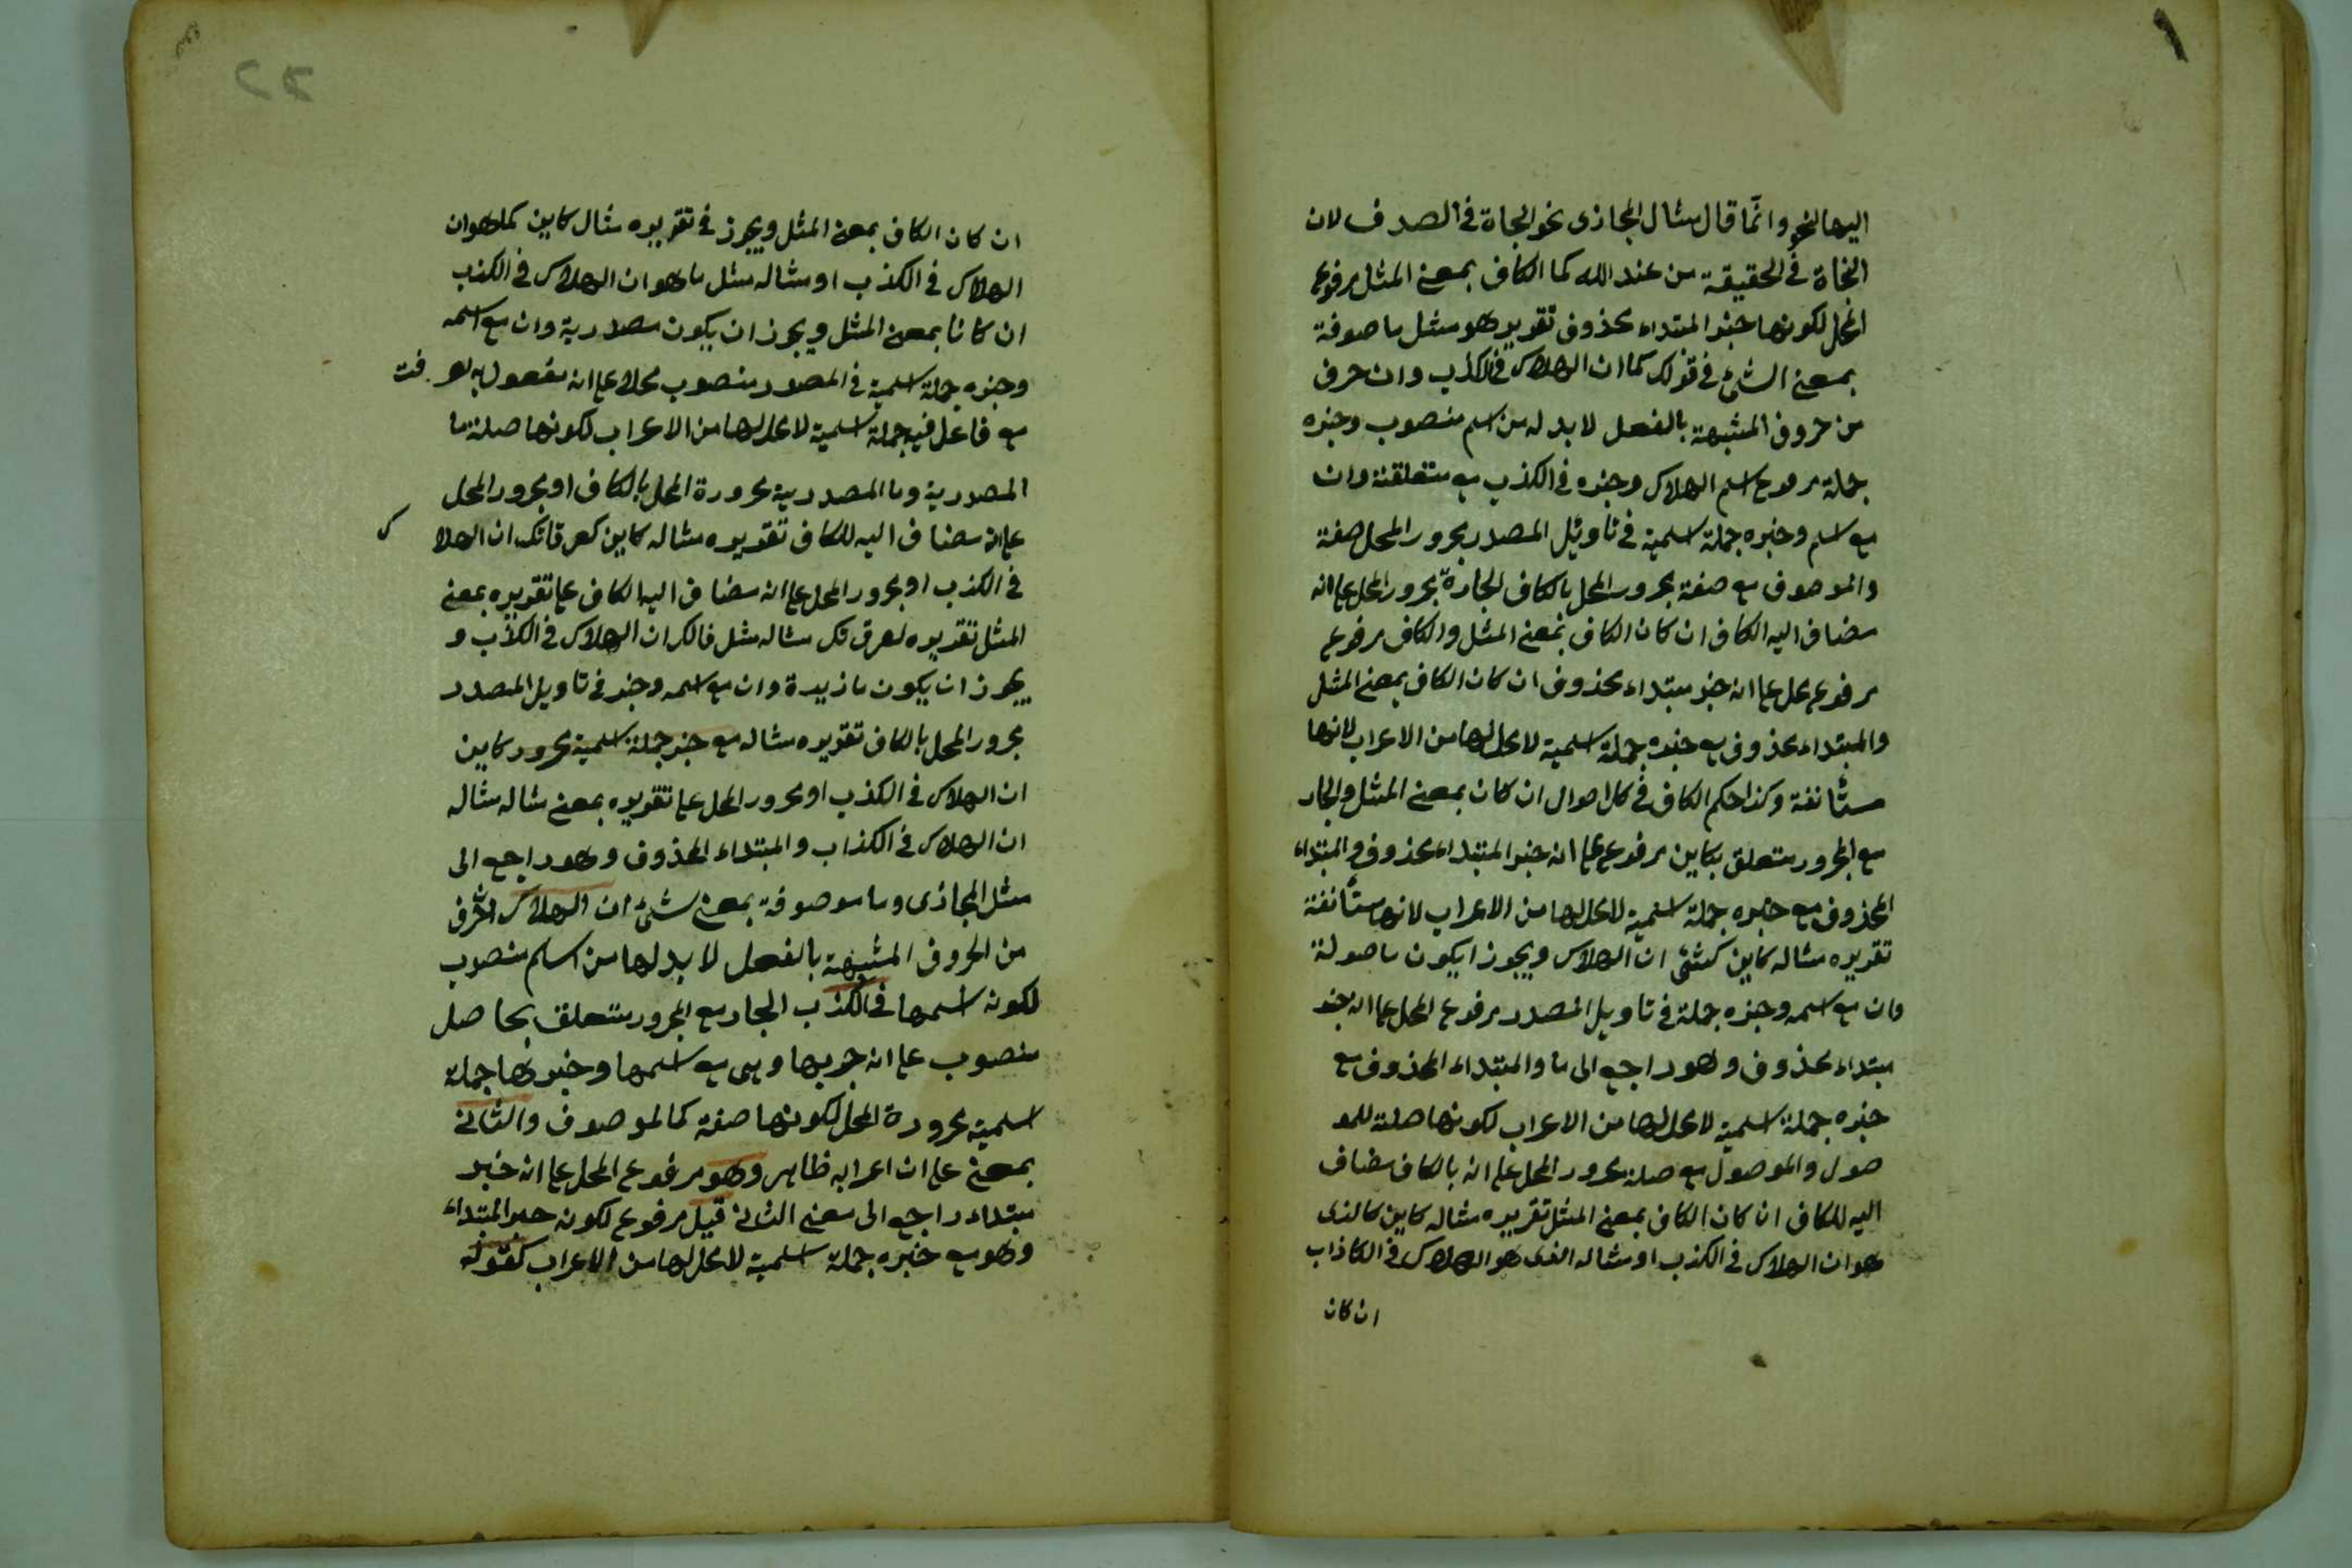 ١
اليها النحو وانما قال مثال المجازى نحو النجاة فى الصدف لان
النجاة فى الحقيقة من عند الله كما الكاف بمعنى المثل مرفوع
المحل لكونها خبر المبتداء محذوف تقديره هو مثل ما صوفة
بمعنى الشئ فى قولك كما ان الهلاك فى الكذب وان حرف
من حروف المشبهة بالفعل لابد له من اسم منصوب وخبره
جملة مرفوع اسم الهلاك وخبره فى الكذب مع متعلقة وان
مع اسم وخبره جملة اسمية فى تاويل المصدر مجرور المحل صفة
والموصوف مع صفة مجرور المحل بالكاف الجارة مجرور المحل على انه
مضاف اليه الكاف ان كان الكاف بمعنى المثل والكاف مرفوع
مرفوع محل على انه خبر مبتداء محذوف ان كان الكاف بمعنى المثل
والمبتداء محذوف مع خبره جملة اسمية لا محل لها من الاعراب لانها
مستأنفة وكذا حكم الكاف فى كل احوال ان كان بمعنى المثل والجار
مع المجرور متعلق بكاين مرفوع على انه خبر المبتداء محذوف والمبتداء
المحذوف مع خبره جملة اسمية لا محل لها من الاعراب لانها مستأنفة
تقديره مثاله كاين كشئ ان الهلاك ويجوز ايكون ما صولة
وان مع اسمه وخبره جملة فى تاويل المصدر مرفوع المحل على انه خبر
مبتداء محذوف وهو راجع الى ما والمبتداء المحذوف مع
خبره جملة اسمية لا محل لها من الاعراب لكونها صلة للمو
صول والموصول مع صلة مجرور المحل على انه بالكاف مضاف
اليه للكاف ان كان الكاف بمعنى المثل تقديره مثاله كاين كالذى
هو ان الهلاك فى الكذب او مثاله الذى هو الهلاك فى الكاذاب
ان كان
ان كان الكاف بمعنى المثل ويجوز فى تقديره مثال كاين كما هو ان
الهلاك فى الكذب او مثاله مثل ما هو ان الهلاك فى الكذب
ان كانا بمعنى المثل ويجوز ان يكون مصدرية وان مع اسمه
وخبره جملة اسمية فى المصدر منصوب محلا على انه مفعول به لعرفت
مع فاعل فيه جملة اسمية لا محل لها من الاعراب لكونها صلة ما
المصدرية وما المصدرية مجرورة المحل بالكاف او مجرور المحل
على انه مضاف اليه للكاف تقديره مثاله كاين كعرفانك ان الهلاك
فى الكذب او مجرور المحل على انه مضاف اليه الكاف على تقديره بمعنى
المثل تقديره مثاله مثل ان الهلاك فى الكذب و
يجوز ان يكون ما زيدة وان مع اسمه وخبر فى تاويل المصدر
مجرور المحل بالكاف تقديره مثاله مع خبر جملة اسمية مجرور كاين
ان الهلاك فى الكذب او مجرور المحل على تقديره بمعنى مثاله مثاله
ان الهلاك فى الكذاب والمبتداء المحذوف وهو راجع الى
مثل المجازى وما موصوفة بمعنى شئ ان الهلاك الحرف
من الحروف المشبهة بالفعل لا بد لها من اسم منصوب
لكونه اسمها فى الكذب الجار مع المجرور متعلق بحاصل
منصوب على انه خبرها وهى مع اسمها وخبرها جملة
اسمية مجرورة المحل لكونها صفة كما لموصوف والثانى
بمعنى على ان اعرابه ظاهر وهو مرفوع المحل على انه خبر
مبتداء راجع الى معنى الثانى قيل مرفوع لكونه خبر المبتداء
وهو مع خبره جملة اسمية لا محل لها من الاعراب كقوله